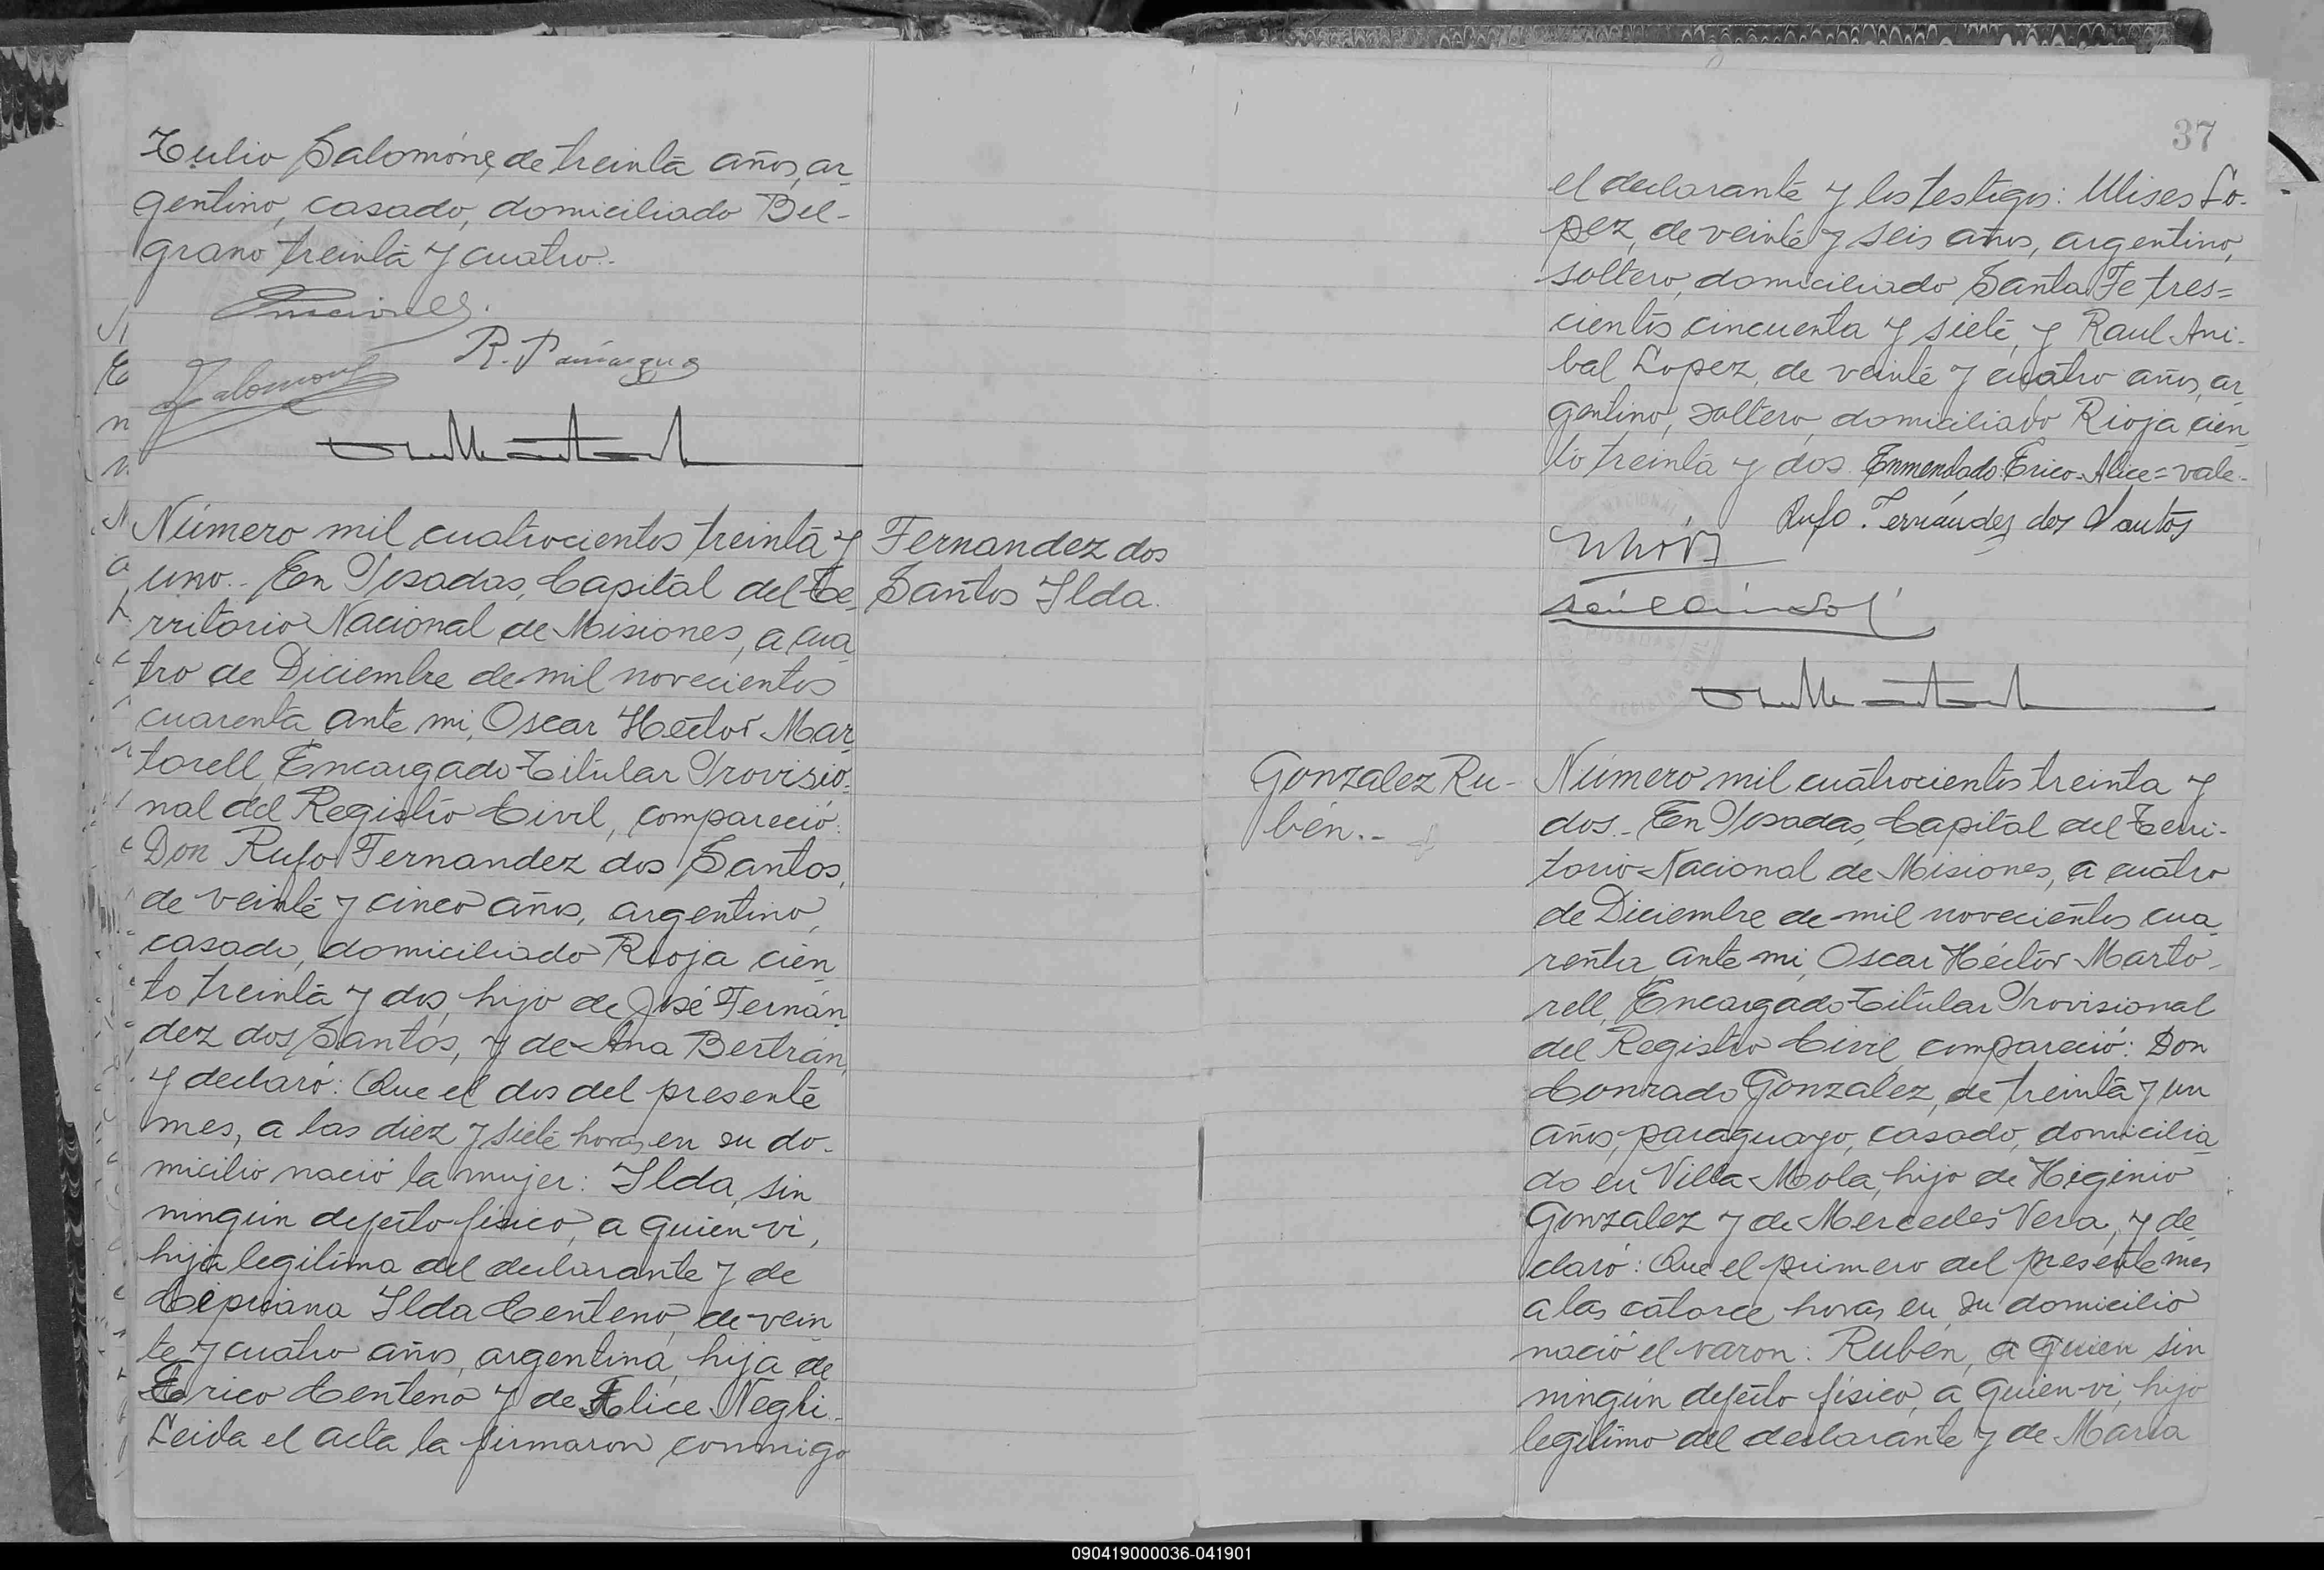 Tulio Salomone, de treinta años, ar-
gentino, casado, domiciliado Bel-
grano treinta y cuatro.-
Número mil cuatrocientos treinta y
uno.- En Posadas, Capital del Te-
rritorio Nacional de Misiones, a cua-
tro de Diciembre de mil novecientos
cuarenta, ante mi, Oscar Héctor Mar-
torell, Encargado Titular Provisio-
nal del Registro Civil, compareció:
Don Rufo Fernandez dos Santos,
de veinte y cinco años, argentino,
casado, domiciliado Rioja cien-
to treinta y dos, hijo de José Fernán-
dez dos Santos, y de Ana Bertrán,
y declaró: Que el dos del presente
mes, a las diez y siete horas, en su do-
micilio nació la mujer: Ilda, sin
ningún defecto físico, a quien vi,
hija legitima del declarante y de
Cipriana Ilda Centeno, de vein-
te y cuatro años, argentina, hija de
Erico Centeno y de Alice Negri.-
Leida el acta la firmaron conmigo
Fernandez dos
Santos Ilda.
37
el declarante y los testigos: Ulises Lo-
pez, de veinte y seis años, argentino,
soltero, domiciliado Santa Fe tres=
cientos cincuenta y siete, y Raul Ani-
bal Lopez, de veinte y cuatro años, ar-
gentino, soltero, domiciliado Rioja cien-
to treinta y dos. Enmendado: Erico-Alice=vale.-
Rufo. Fernández dos Santos
Gonzalez Ru-
bén.-
Número mil cuatrocientos treinta y
dos.- En Posadas, Capital del Terri-
torio Nacional de Misiones, a cuatro
de Diciembre de mil novecientos cua-
renta, ante mi, Oscar Héctor Marto-
rell, Encargado Titular Provisional
del Registro Civil, compareció: Don
Conrado Gonzalez, de treinta y un
años, paraguayo, casado, domicilia-
do en Villa Mola, hijo de Higinio
Gonzalez y de Mercedes Vera, y de-
claró: Que el primero del presente mes
a las catorce horas, en su domicilio
nació el varon: Rubén, a quien sin
ningún defecto físico, a quien vi, hijo
legitimo del declarante y de Maria
090419000036-041901